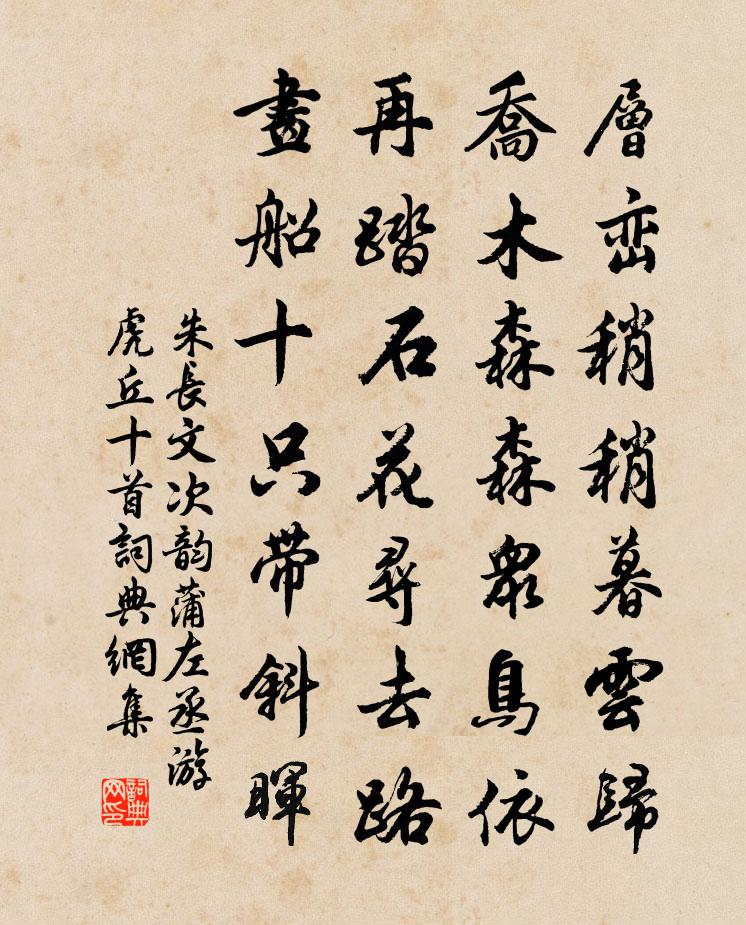 層巒稍稍暮雲歸
喬木森森眾鳥依
再踏石花尋去路
畫船十只帶斜暉
朱長文次韵蒲左丞游
虎丘十首詞典網集
詞典
网印